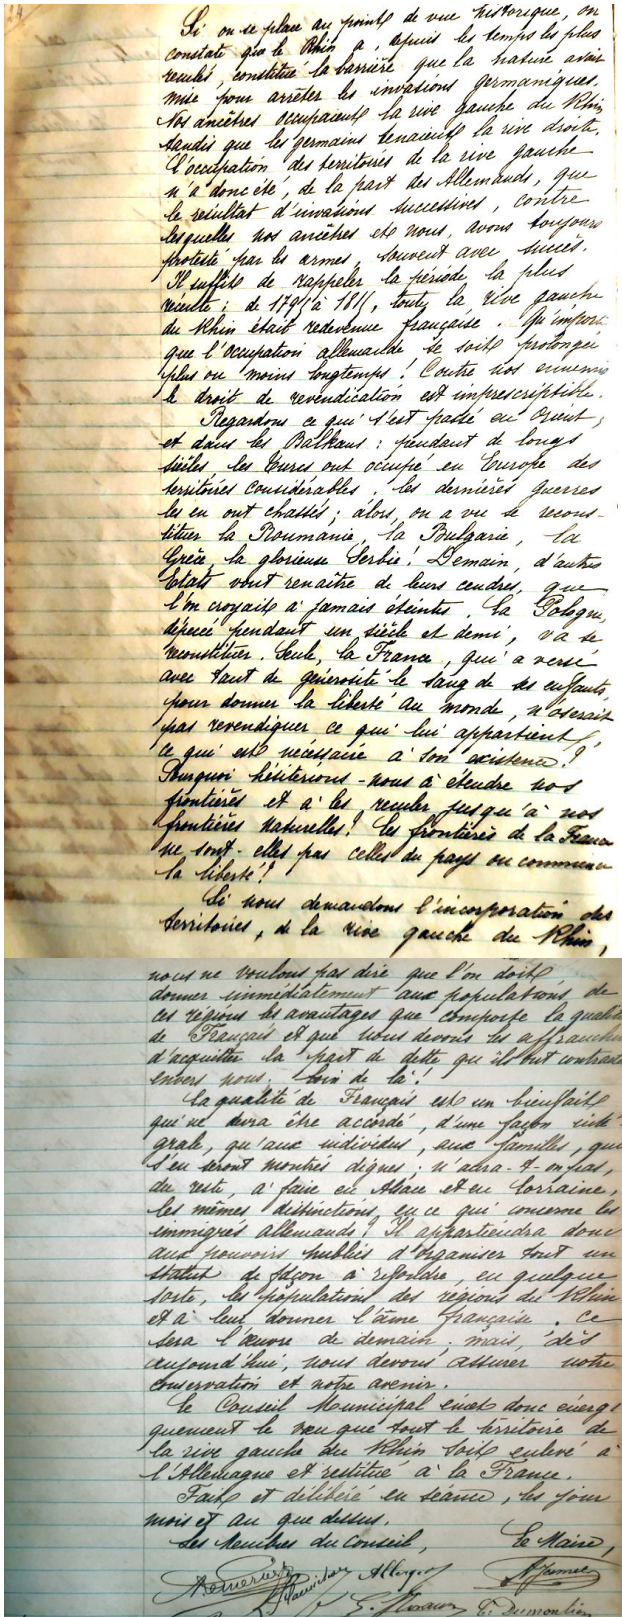 24
Si on se place au point de vue historique, on
constate que le Rhin a, depuis les temps les plus
reculés, constitué la barrière que la nature avait
mise pour arrêter les invasions germaniques.
Nos ancêtres occupaient la rive gauche du Rhin
tandis que les germains tenaient la rive droite.
L'occupation des territoires de la rive gauche
n'a donc été, de la part des Allemands, que
le résultat d'invasions successives, contre
lesquelles nos ancêtres et nous, avons toujours
protesté par les armes, souvent avec succès.
Il suffit de rappeler la période la plus
récente : de 1795 à 1815, toute la rive gauche
du Rhin était redevenue française. Qu'importe
que l'occupation allemande se soit prolongée
plus ou moins longtemps ! Contre nos ennemis
le droit de revendication est imprescriptible.
Regardons ce qui s'est passé en Orient,
et dans les Balkans : pendant de longs
siècles, les Turcs ont occupé en Europe des
territoires considérables, les dernières guerres
les en ont chassés ; alors, on a vu se recons-
tituer la Roumanie, la Bulgarie, la
Grèce, la glorieuse Serbie ! Demain, d'autres
Etats vont renaître de leurs cendres, que
l'on croyait à jamais éteintes. La Pologne,
dépecée pendant un siècle et demi, va se
reconstituer. Seule, la France, qui a versé
avec tant de générosité le sang de ses enfants,
pour donner la liberté au monde, n'oserait
pas revendiquer ce qui lui appartient,
ce qui est nécessaire à son existence ?
Pourquoi hésiterions-nous à étendre nos
frontières et à les reculer jusqu'à nos
frontières naturelles ? Les frontières de la France
ne sont-elles pas celles du pays ou commence
la liberté ?
Si nous demandons l'incorporation des
territoires, de la rive gauche du Rhin,
nous ne voulons pas dire que l'on doit
donner immédiatement aux populations de
ces régions les avantages que comporte la qualité
de Français et que nous devons les affranchir
d'acquitter la part de dette qu'ils ont contractée
envers nous. Loin de là !
La qualité de Français est un bienfait
qui ne devra être accordé, d'une façon inté-
grale, qu'aux individus, aux familles, qui
s'en seront montrés dignes ; n'aura-t-on pas,
du reste, à faire en Alsace et en Lorraine,
les mêmes distinctions, en ce qui concerne les
immigrés allemands ? Il appartiendra donc
aux pouvoirs publics d'organiser tout un
statut de façon à refondre, en quelque
sorte, les populations des régions du Rhin
et à leur donner l'âme française. Ce
sera l'œuvre de demain ; mais, dès
aujourd'hui, nous devons assurer notre
conservation et notre avenir.
Le Conseil Municipal émet donc énergi
quement le vœu que tout le territoire de
la rive gauche du Rhin soit enlevé à
l'Allemagne et restitué à la France.
Fait et délibéré en séance, les jour
mois et an que dessus.
Les Membres du Conseil, Le Maire,